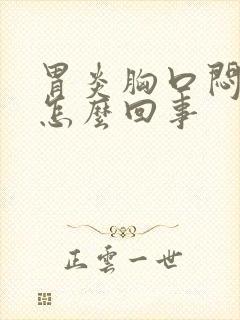 胃炎胸口悶
怎麼回事
正雲一世